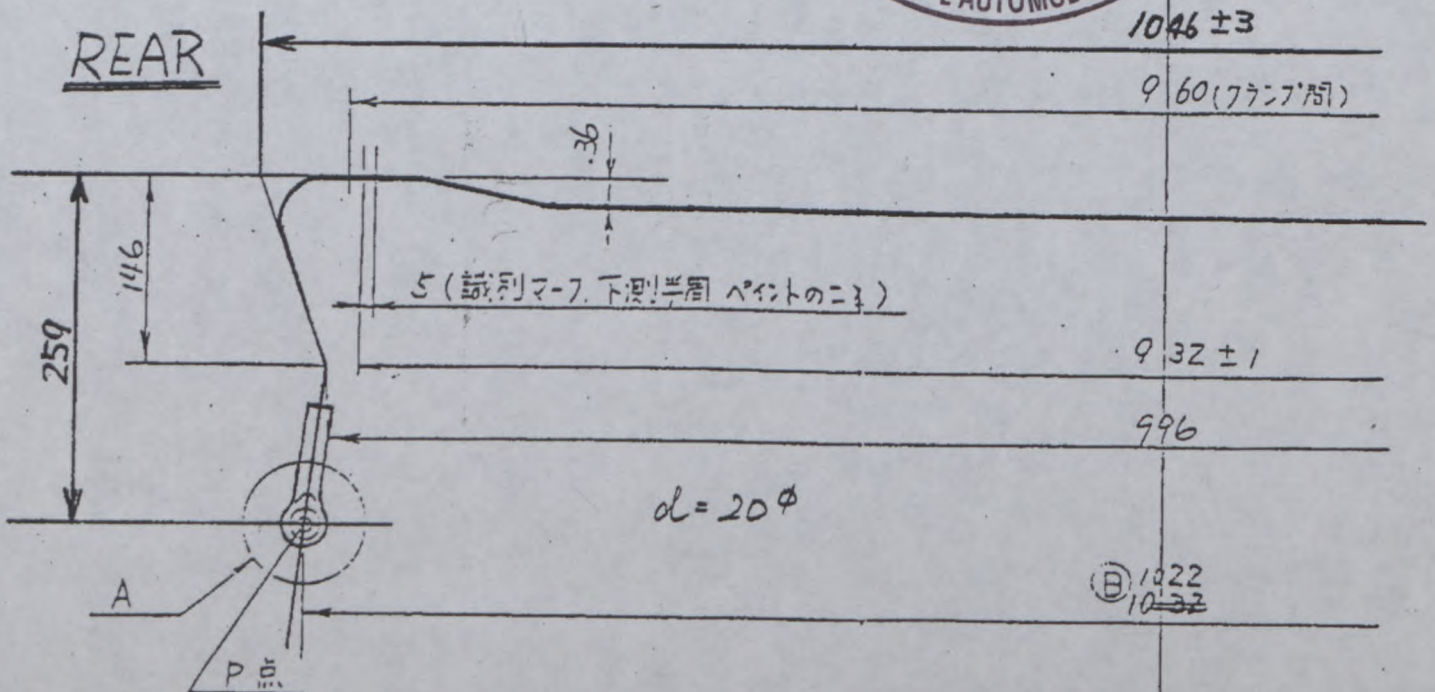 L'AUTOMOB
1046 ±3
REAR
960 (フランプ間)
36
146
259
5 (識別マーク 下側半周 ペイントのこと)
932 ±1
996
d = 20φ
A
Ⓑ 1022
1032
P点